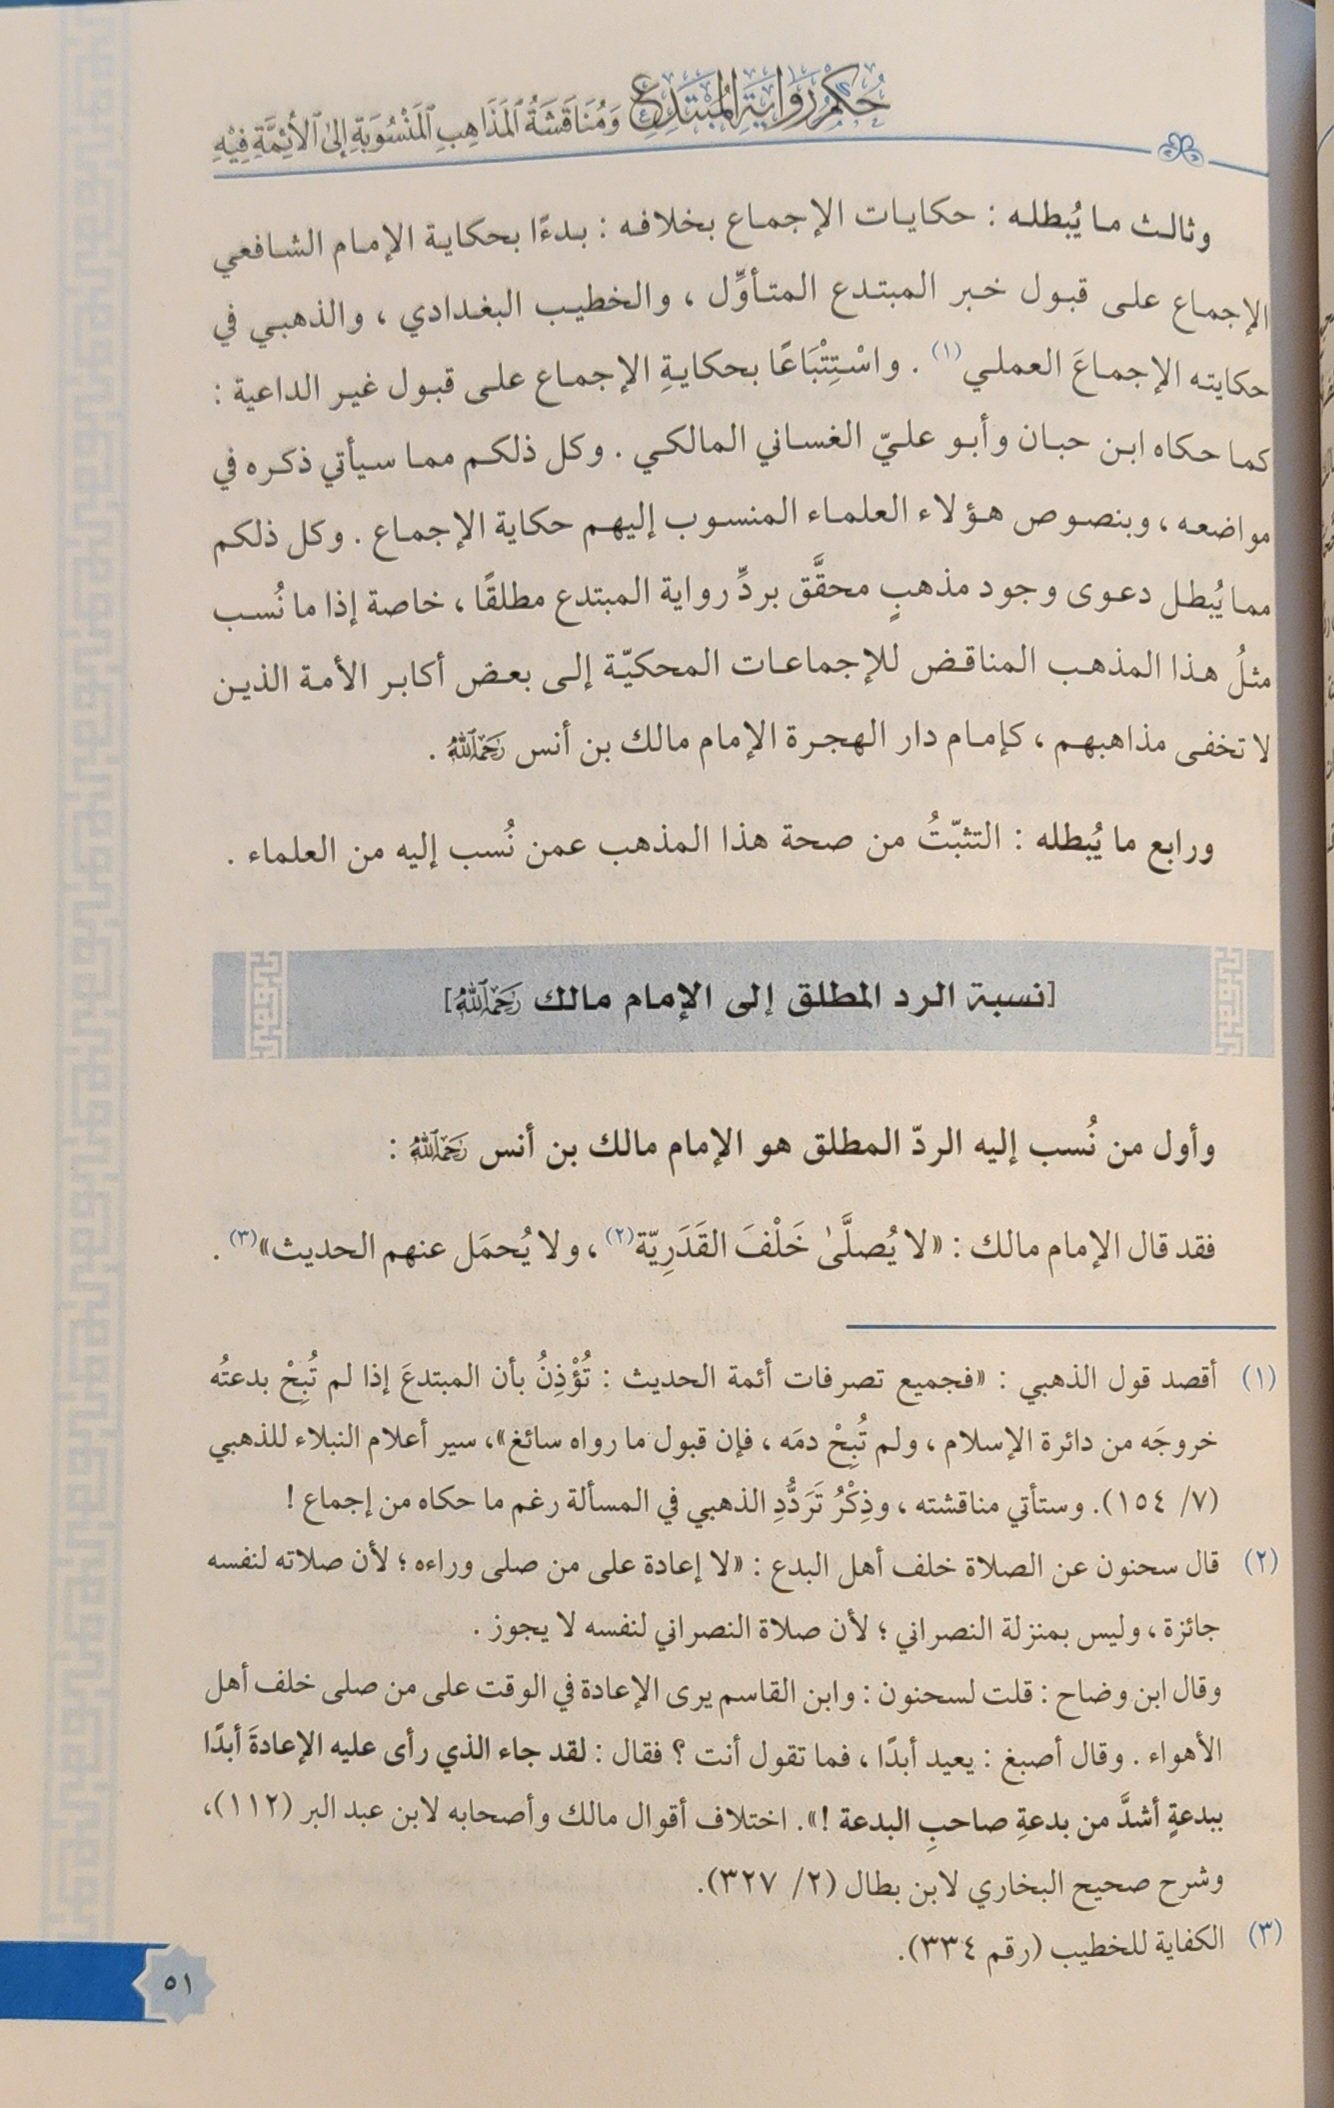 حُكْمُ رِوَايَةِ المُبْتَدِعِ وَمُنَاقَشَةُ المَذَاهِبِ المَنْسُوبَةِ إلى الأَئِمَّةِ فِيْهِ
وثالث ما يُبطله : حكايات الإجماع بخلافه : بدءًا بحكاية الإمام الشافعي
الإجماع على قبول خبر المبتدع المتأوِّل ، والخطيب البغدادي ، والذهبي في
حكايته الإجماعَ العملي(١) . واسْتِتْبَاعًا بحكايةِ الإجماع على قبول غير الداعية :
كما حكاه ابن حبان وأبو عليّ الغساني المالكي . وكل ذلكم مما سيأتي ذكره في
مواضعه ، وبنصوص هؤلاء العلماء المنسوب إليهم حكاية الإجماع . وكل ذلكم
مما يُبطل دعوى وجود مذهبٍ محقَّق بردِّ رواية المبتدع مطلقًا ، خاصة إذا ما نُسب
مثلُ هذا المذهب المناقض للإجماعات المحكيّة إلى بعض أكابر الأمة الذين
لا تخفى مذاهبهم ، كإمام دار الهجرة الإمام مالك بن أنس رَحِمَهُ ٱللَّهُ .
ورابع ما يُبطله : التثبّتُ من صحة هذا المذهب عمن نُسب إليه من العلماء .
[نسبة الرد المطلق إلى الإمام مالك رَحِمَهُ ٱللَّهُ]
وأول من نُسب إليه الردّ المطلق هو الإمام مالك بن أنس رَحِمَهُ ٱللَّهُ :
فقد قال الإمام مالك : «لا يُصلَّىٰ خَلْفَ القَدَرِيّة(٢) ، ولا يُحمَل عنهم الحديث»(٣) .
(١) أقصد قول الذهبي : «فجميع تصرفات أئمة الحديث : تُؤْذِنُ بأن المبتدعَ إذا لم تُبِحْ بدعتُه
خروجَه من دائرة الإسلام ، ولم تُبِحْ دمَه ، فإن قبول ما رواه سائغ»، سير أعلام النبلاء للذهبي
(٧/ ١٥٤). وستأتي مناقشته ، وذِكْرُ تَرَدُّدِ الذهبي في المسألة رغم ما حكاه من إجماع !
(٢) قال سحنون عن الصلاة خلف أهل البدع : «لا إعادة على من صلى وراءه ؛ لأن صلاته لنفسه
جائزة ، وليس بمنزلة النصراني ؛ لأن صلاة النصراني لنفسه لا يجوز .
وقال ابن وضاح : قلت لسحنون : وابن القاسم يرى الإعادة في الوقت على من صلى خلف أهل
الأهواء . وقال أصبغ : يعيد أبدًا ، فما تقول أنت ؟ فقال : لقد جاء الذي رأى عليه الإعادةَ أبدًا
ببدعةٍ أشدَّ من بدعةِ صاحبِ البدعة !». اختلاف أقوال مالك وأصحابه لابن عبد البر (١١٢)،
وشرح صحيح البخاري لابن بطال (٢/ ٣٢٧).
(٣) الكفاية للخطيب (رقم ٣٣٤).
٥١